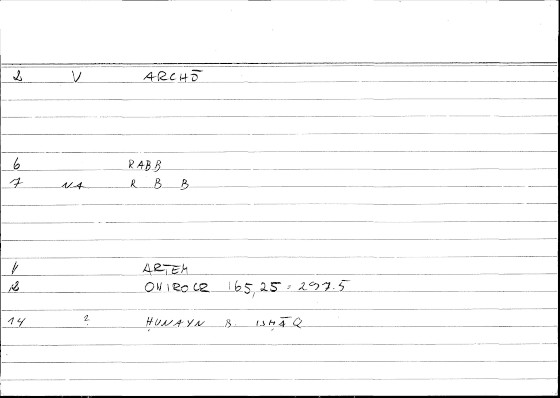 2 V ARCHŌ
6 RABB
7 NA R B B
11 ARTEM
12 ONIROCR 165,25 = 297.5
14 ? ḤUNAYN B ISḤĀQ